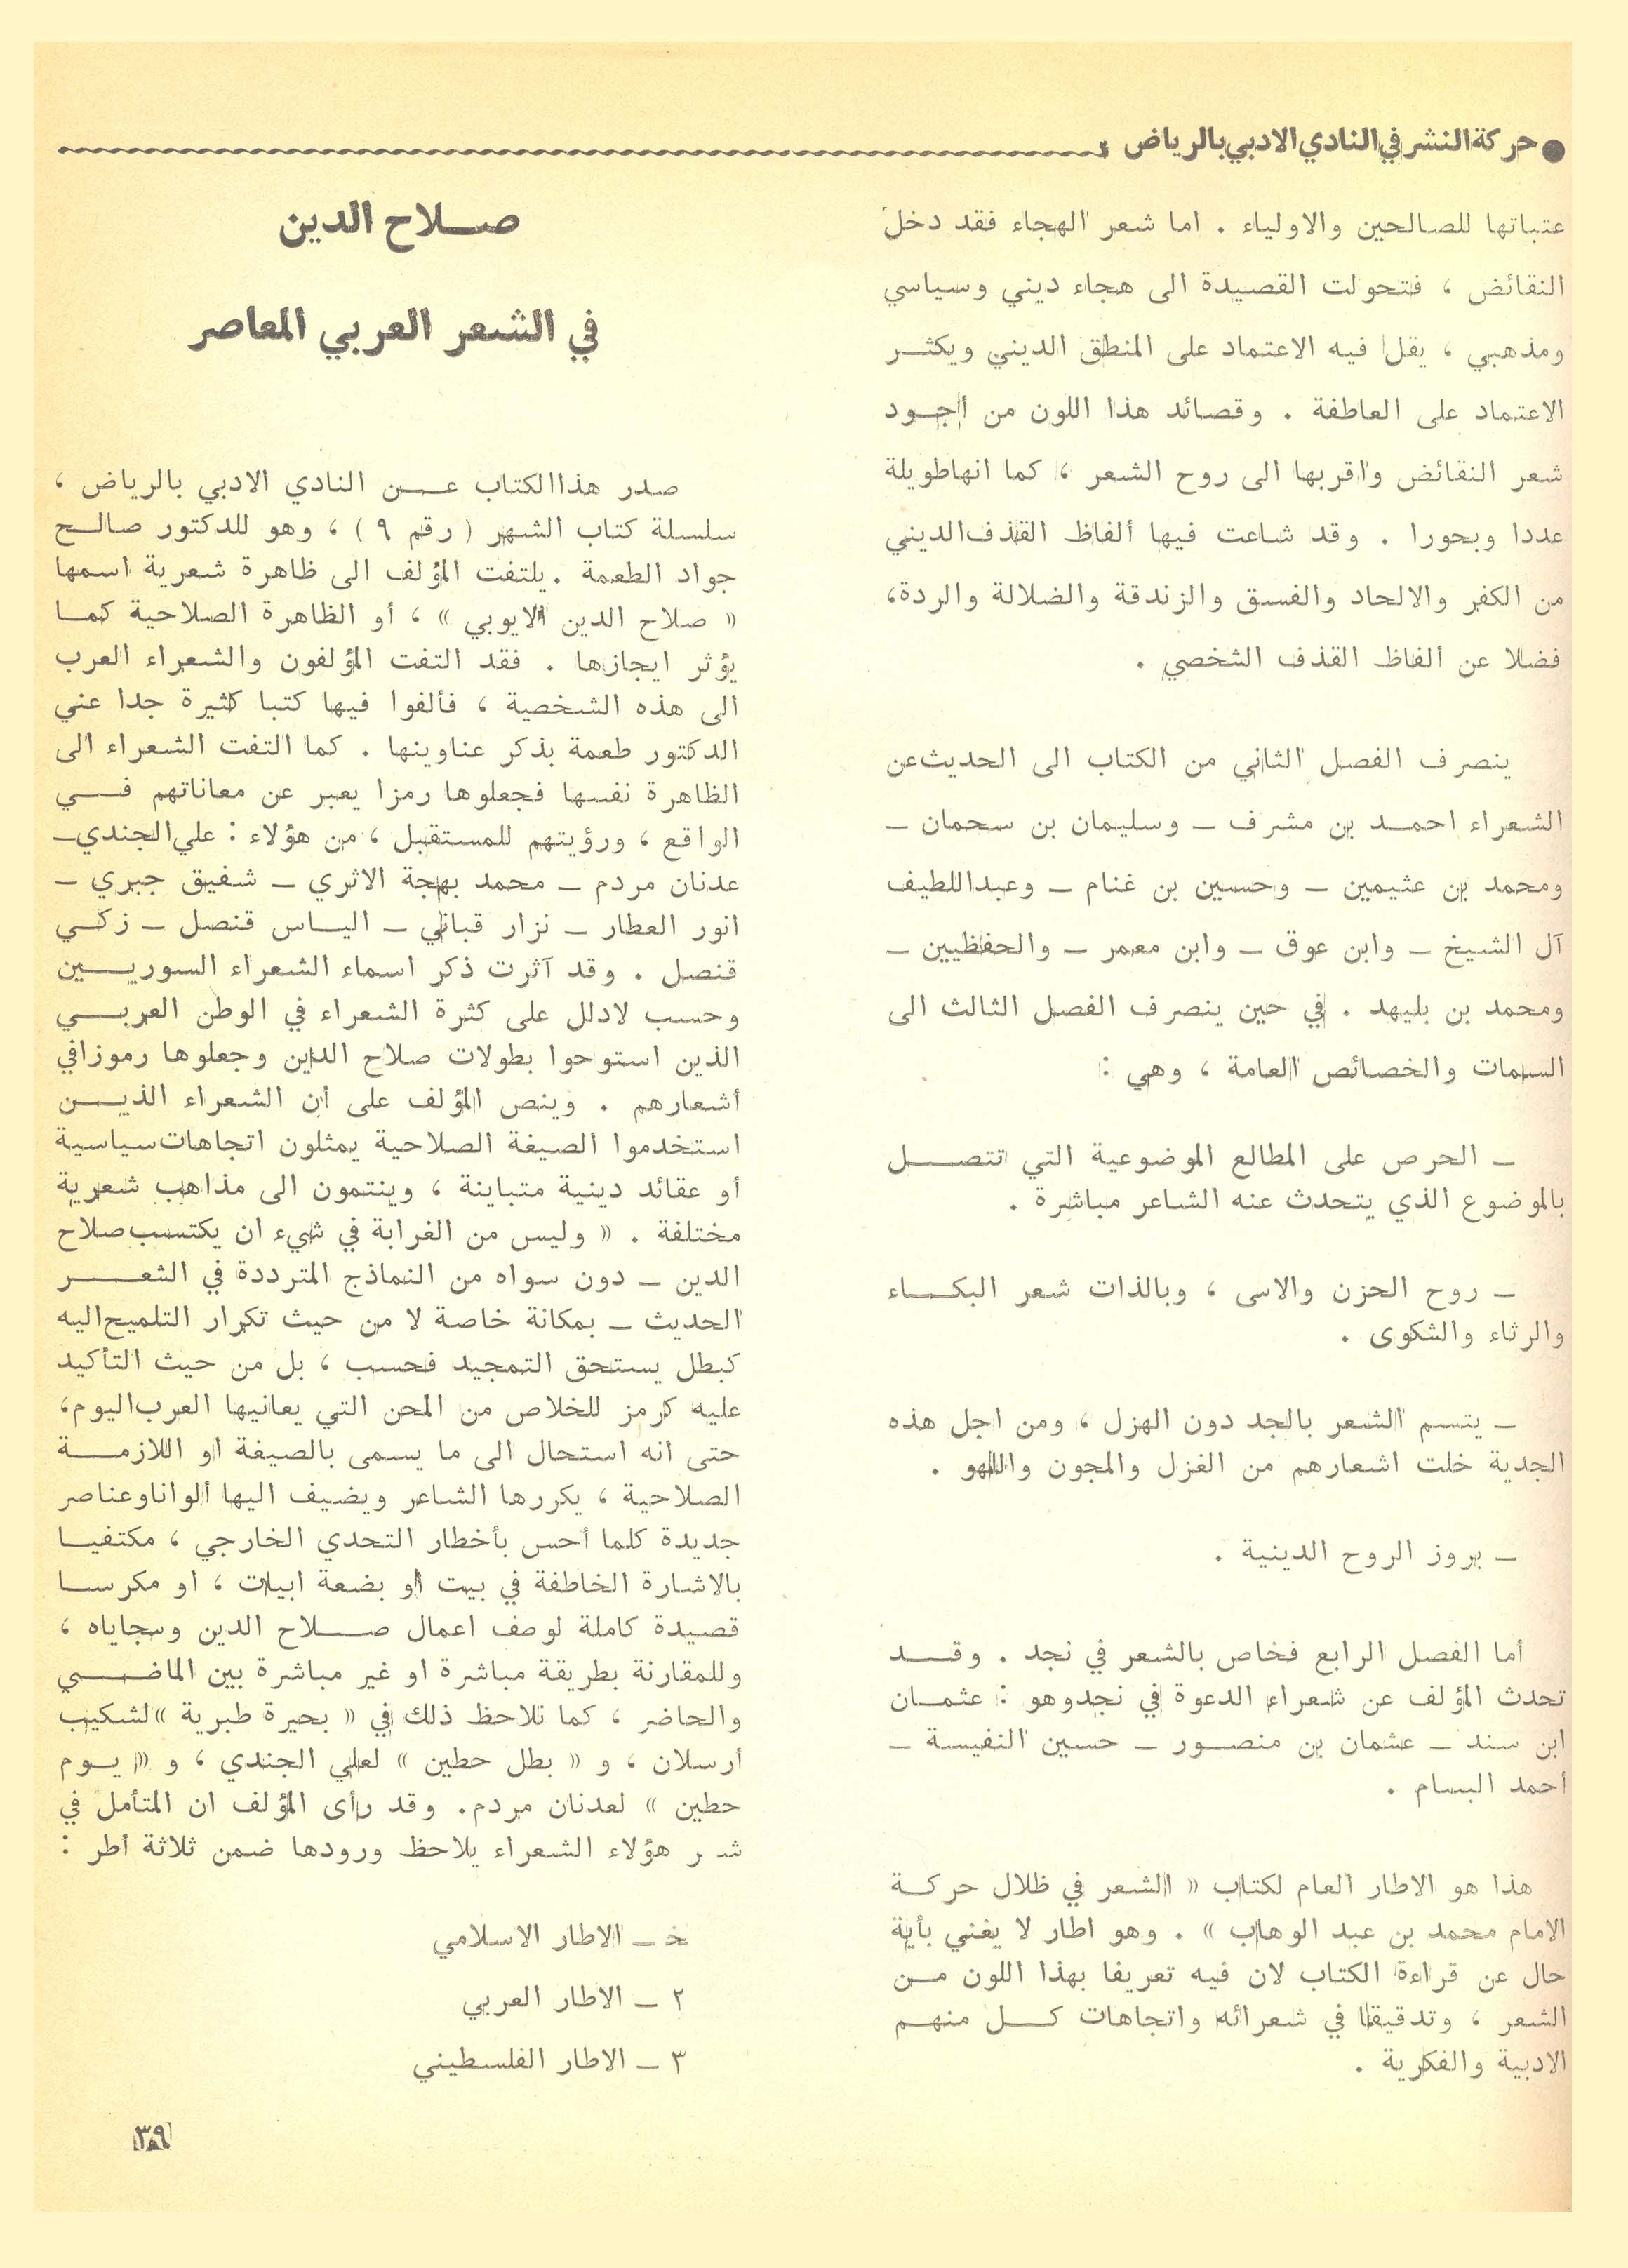 ● حركة النشر في النادي الادبي بالرياض
عتباتها للصالحين والاولياء . اما شعر الهجاء فقد دخل
النقائض ، فتحولت القصيدة الى هجاء ديني وسياسي
ومذهبي ، يقل فيه الاعتماد على المنطق الديني ويكثــر
الاعتماد على العاطفة . وقصائد هذا اللون من أجــود
شعر النقائض واقربها الى روح الشعر ، كما انهاطويلة
عددا وبحورا . وقد شاعت فيها ألفاظ القذف الديني
من الكفر والالحاد والفسق والزندقة والضلالة والردة،
فضلا عن ألفاظ القذف الشخصي .
ينصرف الفصل الثاني من الكتاب الى الحديث عن
الشعراء احمـد بن مشرف ـ وسليمان بن سحمان ـ
ومحمد بن عثيمين ـ وحسين بن غنام ـ وعبداللطيف
آل الشيخ ـ وابن عوق ـ وابن معمر ـ والحفظيين ـ
ومحمد بن بليهد . في حين ينصرف الفصل الثالث الى
السمات والخصائص العامة ، وهي :
ـ الحرص على المطالع الموضوعية التي تتصــل
بالموضوع الذي يتحدث عنه الشاعر مباشرة .
ـ روح الحزن والاسى ، وبالذات شعر البكــاء
والرثاء والشكوى .
ـ يتسم الشعر بالجد دون الهزل ، ومن اجل هذه
الجدية خلت اشعارهم من الغزل والمجون واللهو .
ـ بروز الروح الدينية .
أما الفصل الرابع فخاص بالشعر في نجد . وقــد
تحدث المؤلف عن شعراء الدعوة في نجدوهو : عثمـان
ابن سند ـ عثمان بن منصـور ـ حسين النفيسة ـ
أحمد البسام .
هذا هو الاطار العام لكتاب « الشعر في ظلال حركـة
الامام محمد بن عبد الوهاب » . وهو اطار لا يغني بأية
حال عن قراءة الكتاب لان فيه تعريفا بهذا اللون مـن
الشعر ، وتدقيقا في شعرائه واتجاهات كــل منهــم
الادبية والفكرية .
صــلاح الدين
في الشعر العربي المعاصر
صدر هذاالكتاب عــن النادي الادبي بالرياض ،
سلسلة كتاب الشهر ( رقم ٩ ) ، وهو للدكتور صالـح
جواد الطعمة .يلتفت المؤلف الى ظاهرة شعرية اسمها
« صلاح الدين الايوبي » ، أو الظاهرة الصلاحية كمـا
يؤثر ايجازها . فقد التفت المؤلفون والشعراء العرب
الى هذه الشخصية ، فألفوا فيها كتبا كثيرة جدا عني
الدكتور طعمة بذكر عناوينها . كما التفت الشعراء الى
الظاهرة نفسها فجعلوها رمزا يعبر عن معاناتهم فــي
الواقع ، ورؤيتهم للمستقبل ، من هؤلاء : علي الجندي ـ
عدنان مردم ـ محمد بهجة الاثري ـ شفيق جبري ـ
انور العطار ـ نزار قباني ـ اليـاس قنصل ـ زكـي
قنصل . وقد آثرت ذكر اسماء الشعراء السوريــين
وحسب لادلل على كثرة الشعراء في الوطن العربــي
الذين استوحوا بطولات صلاح الدين وجعلوها رموزافي
أشعارهم . وينص المؤلف على ان الشعراء الذيــن
استخدموا الصيغة الصلاحية يمثلون اتجاهات سياسية
أو عقائد دينية متباينة ، وينتمون الى مذاهب شعرية
مختلفة . « وليس من الغرابة في شيء ان يكتسب صلاح
الدين ـ دون سواه من النماذج المترددة في الشعــر
الحديث ـ بمكانة خاصة لا من حيث تكرار التلميح اليه
كبطل يستحق التمجيد فحسب ، بل من حيث التأكيد
عليه كرمز للخلاص من المحن التي يعانيها العرب اليوم،
حتى انه استحال الى ما يسمى بالصيغة او اللازمــة
الصلاحية ، يكررها الشاعر ويضيف اليها ألواناوعناصر
جديدة كلما أحس بأخطار التحدي الخارجي ، مكتفيـا
بالاشارة الخاطفة في بيت او بضعة ابيات ، او مكرسـا
قصيدة كاملة لوصف اعمال صــلاح الدين وسجاياه ،
وللمقارنة بطريقة مباشرة او غير مباشرة بين الماضــي
والحاضر ، كما نلاحظ ذلك في « بحيرة طبرية »لشكيب
أرسلان ، و « بطل حطين » لعلي الجندي ، و « يــوم
حطين » لعدنان مردم. وقد رأى المؤلف ان المتأمل في
هؤلاء الشعراء يلاحظ ورودها ضمن ثلاثة أطر :
ـ الاطار الاسلامي
٢ ـ الاطار العربي
٣ ـ الاطار الفلسطيني
٣٩